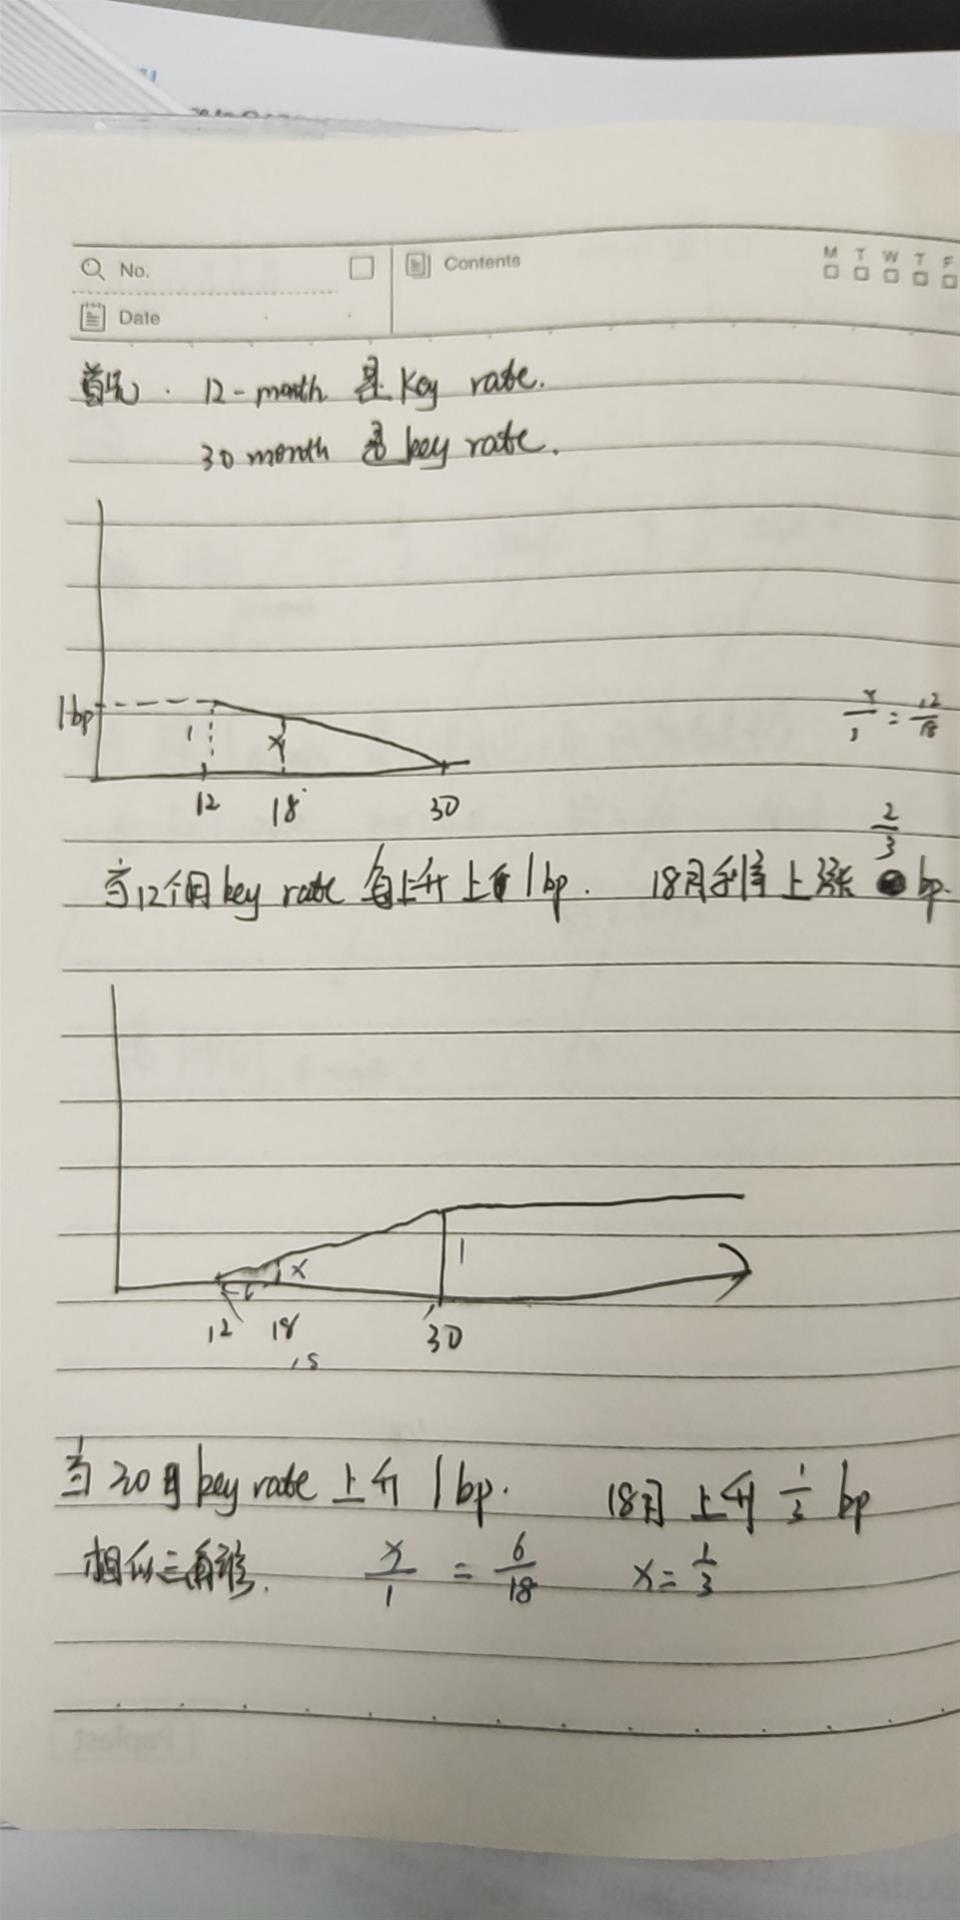 No.
Contents
M T W T F
Date
首先. 12-month 是 key rate.
30 month 是 key rate.
1bp
1 x
12 18 30
x/1 = 12/18
当12个月 key rate 每上升 1bp. 18月利率上涨 2/3 bp.
x 1
6
12 18 30
15
当 30月 key rate 上升 1bp. 18月 上升 1/3 bp
相似三角形. x/1 = 6/18 x = 1/3